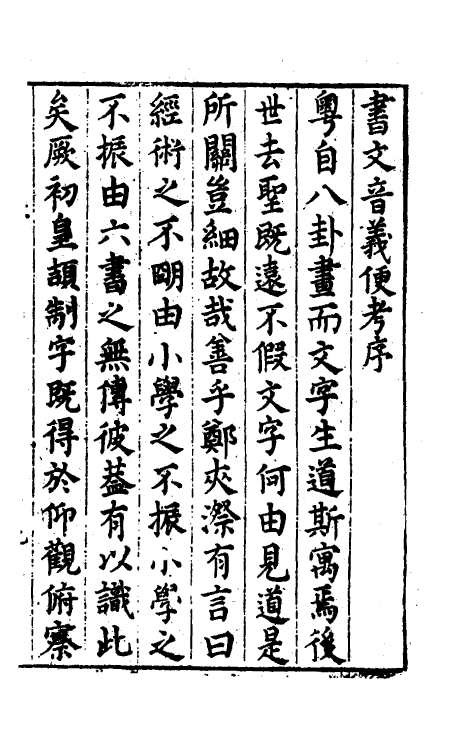 書文音義便考序
粵自八卦畫而文字生道斯寓焉後
世去聖既遠不假文字何由見道是
所關豈細故哉善乎鄭夾漈有言曰
經術之不明由小學之不振小學之
不振由六書之無傳彼葢有以識此
矣厥初皇頡制字既得於仰觀俯察